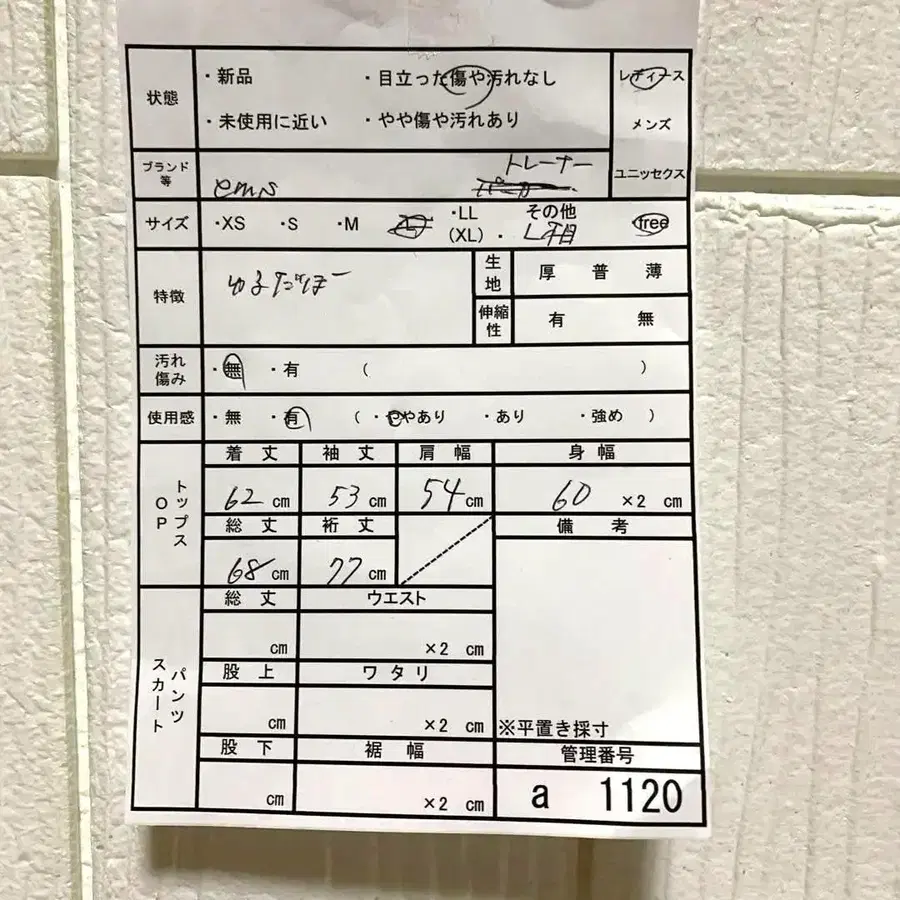 状態 ・新品 ・目立った傷や汚れなし レディース
・未使用に近い ・やや傷や汚れあり メンズ
ブランド等 ems トレーナー ユニッセクス
サイズ ・XS ・S ・M ・L ・LL (XL) ・ その他 L相 free
特徴 ゆるだぼー 生地 厚 普 薄
伸縮性 有 無
汚れ傷み ・無 ・有 ( )
使用感 ・無 ・有 ( ・ややあり ・あり ・強め )
トップス OP 着丈 袖丈 肩幅 身幅
62 cm 53 cm 54 cm 60 ×2 cm
総丈 裄丈 備考
68 cm 77 cm
パンツ スカート 総丈 ウエスト
cm ×2 cm
股上 ワタリ
cm ×2 cm ※平置き採寸
股下 裾幅 管理番号
cm ×2 cm a 1120